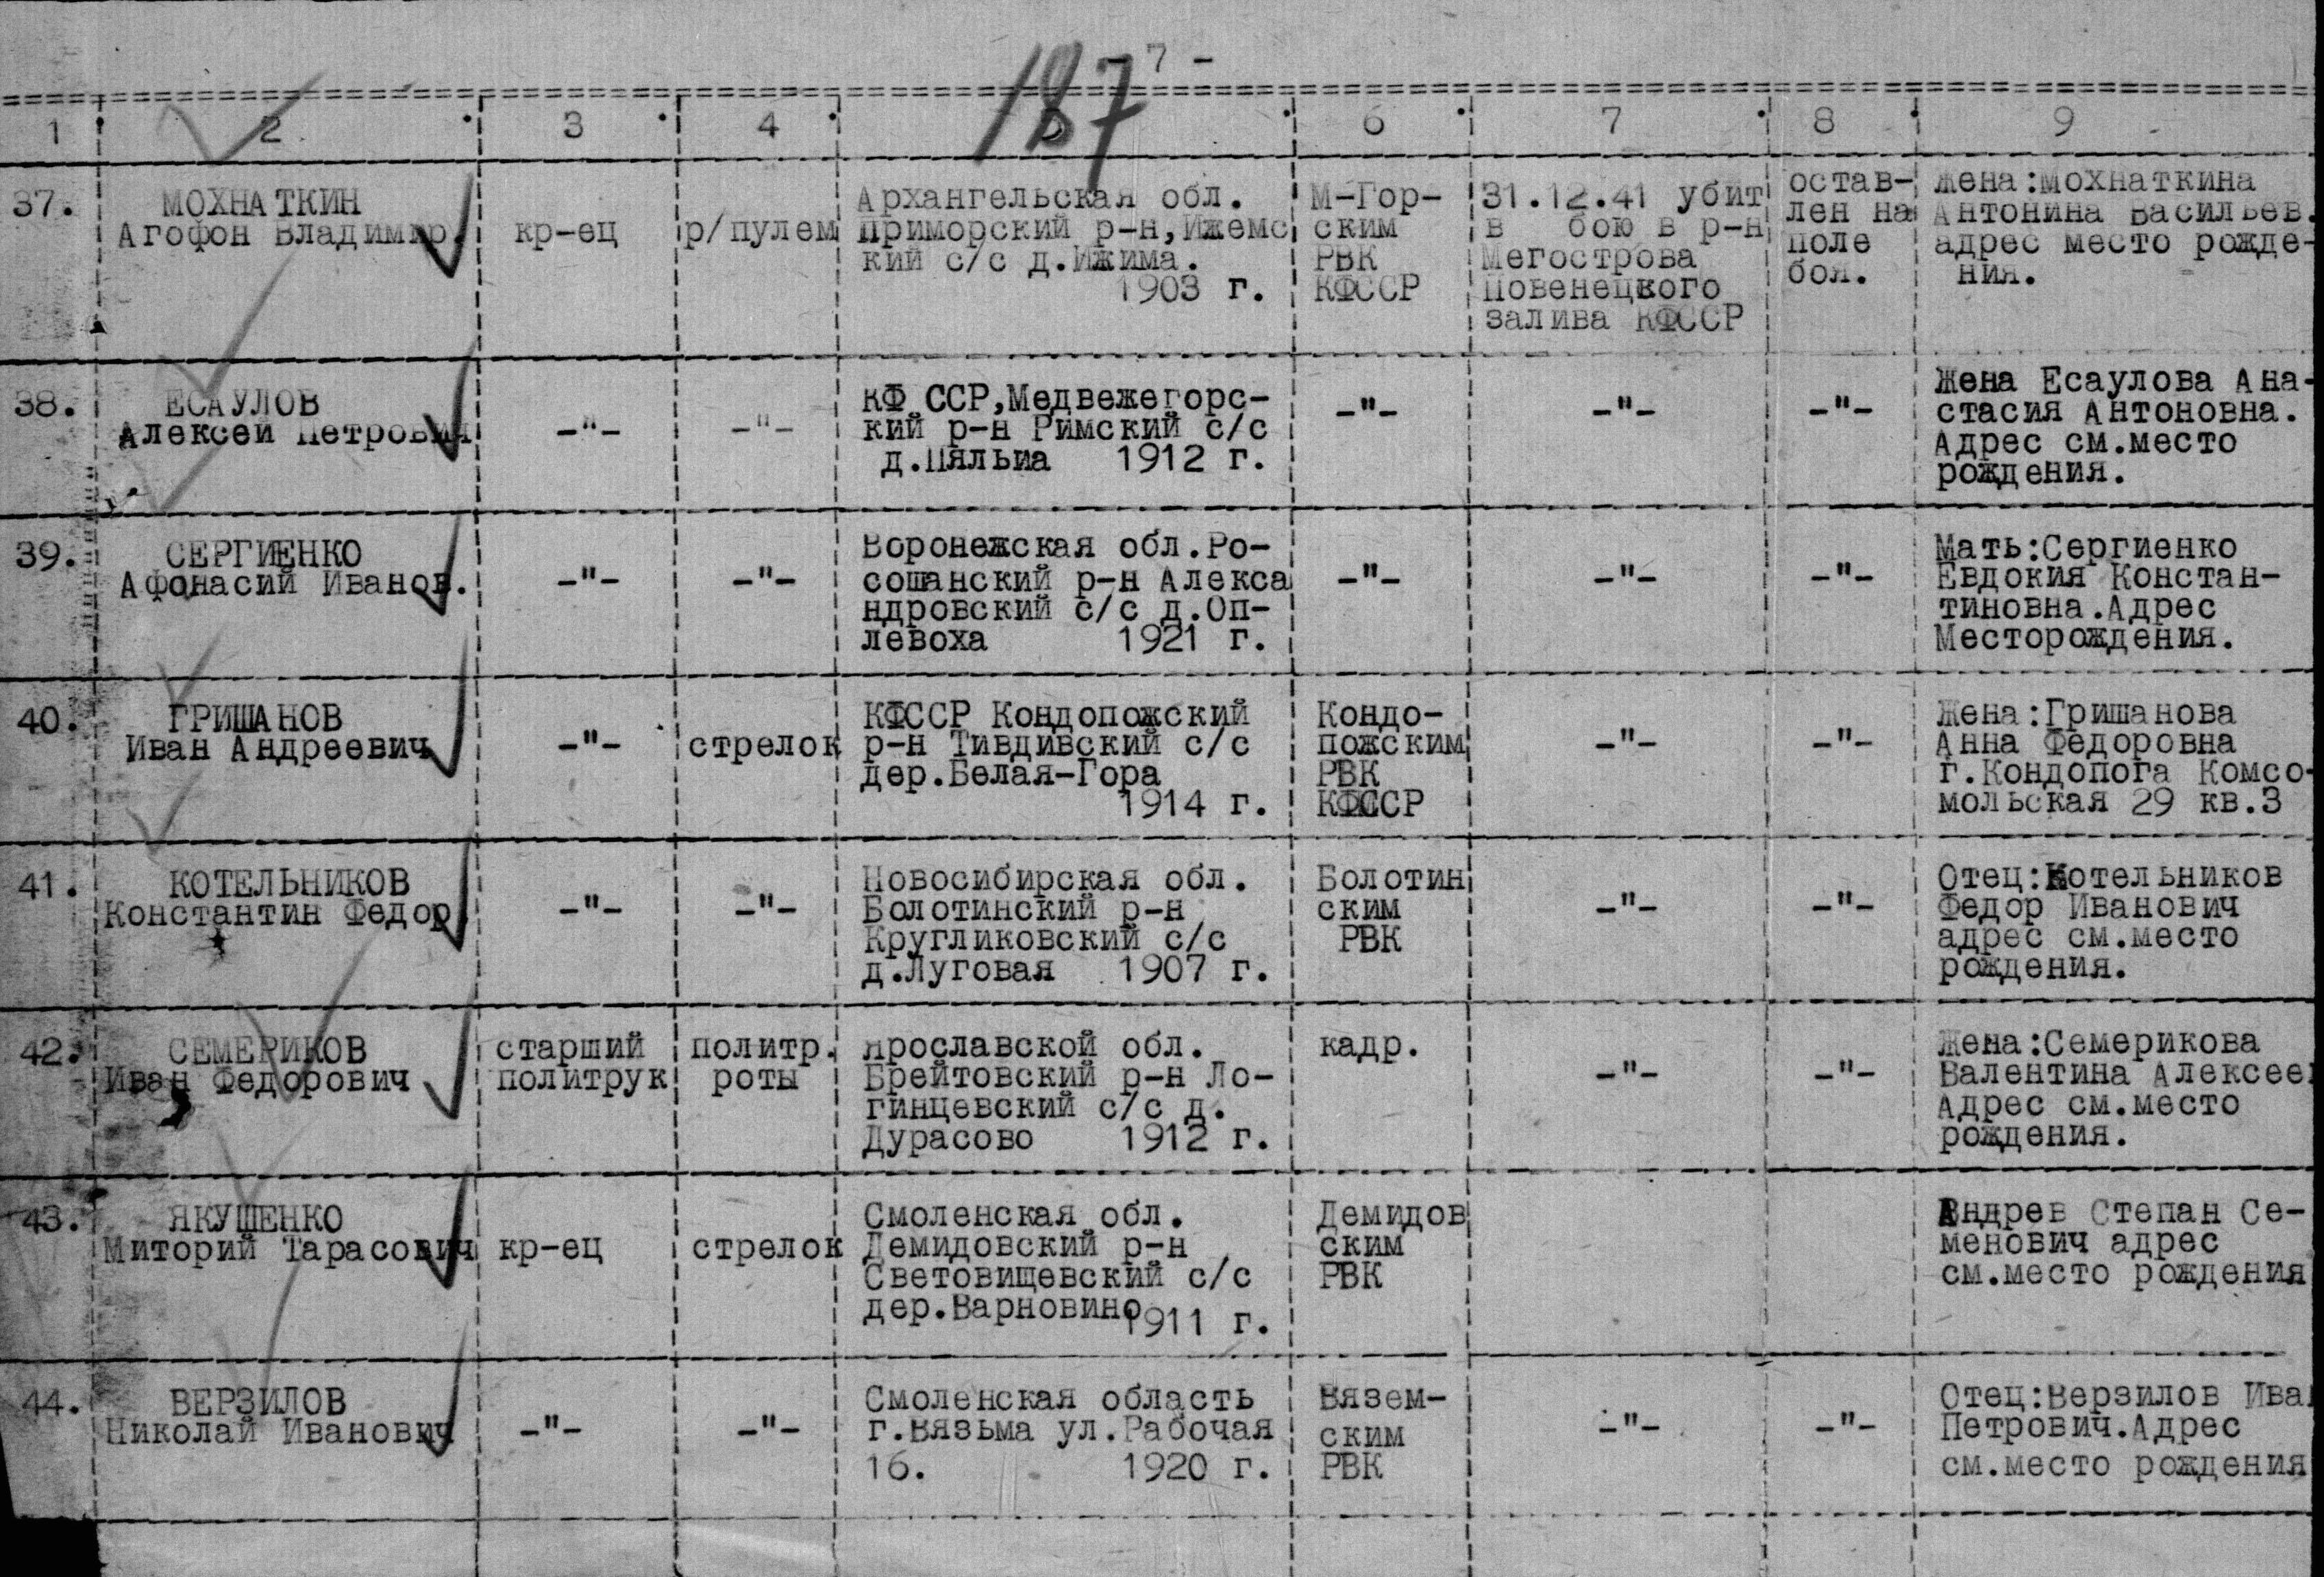 - 7 -
187
1 2 3 4 5 6 7 8 9
37.
МОХНАТКИН
Агофон Владимир.
кр-ец
р/пулем
Архангельская обл.
Приморский р-н,Ижемс
кий с/с д.Ижима.
1903 г.
М-Гор-
ским
РВК
КФССР
31.12.41 убит
в бою в р-н
Мегострова
Повенецкого
залива КФССР
остав-
лен на
поле
боя.
Жена:Мохнаткина
Антонина Васильев.
адрес место рожде-
ния.
38.
ЕСАУЛОВ
Алексей Петрович
-"-
-"-
КФ ССР,Медвежегорс-
кий р-н Римский с/с
д.Пяльма 1912 г.
-"-
-"-
-"-
Жена Есаулова Ана-
стасия Антоновна.
Адрес см.место
рождения.
39.
СЕРГИЕНКО
Афонасий Иванов.
-"-
-"-
Воронежская обл.Ро-
сошанский р-н Алекса
ндровский с/с д.Оп-
левоха 1921 г.
-"-
-"-
-"-
Мать:Сергиенко
Евдокия Констан-
тиновна.Адрес
Месторождения.
40.
ГРИШАНОВ
Иван Андреевич
-"-
стрелок
КФССР Кондопожский
р-н Тивдивский с/с
дер.Белая-Гора
1914 г.
Кондо-
пожским
РВК
КФССР
-"-
-"-
Жена:Гришанова
Анна Федоровна
г.Кондопога Комсо-
мольская 29 кв.3
41.
КОТЕЛЬНИКОВ
Константин Федор.
-"-
-"-
Новосибирская обл.
Болотинский р-н
Кругликовский с/с
д.Луговая 1907 г.
Болотин
ским
РВК
-"-
-"-
Отец:Котельников
Федор Иванович
адрес см.место
рождения.
42.
СЕМЕРИКОВ
Иван Федорович
старший
политрук
политр.
роты
Ярославской обл.
Брейтовский р-н Ло-
гинцевский с/с д.
Дурасово 1912 г.
кадр.
-"-
-"-
Жена:Семерикова
Валентина Алексеев
Адрес см.место
рождения.
43.
ЯКУШЕНКО
Миторий Тарасович
кр-ец
стрелок
Смоленская обл.
Демидовский р-н
Световищевский с/с
дер.Варновино
1911 г.
Демидов
ским
РВК
Андрев Степан Се-
менович адрес
см.место рождения
44.
ВЕРЗИЛОВ
Николай Иванович
-"-
-"-
Смоленская область
г.Вязьма ул.Рабочая
16. 1920 г.
Вязем-
ским
РВК
-"-
-"-
Отец:Верзилов Ива
Петрович.Адрес
см.место рождения